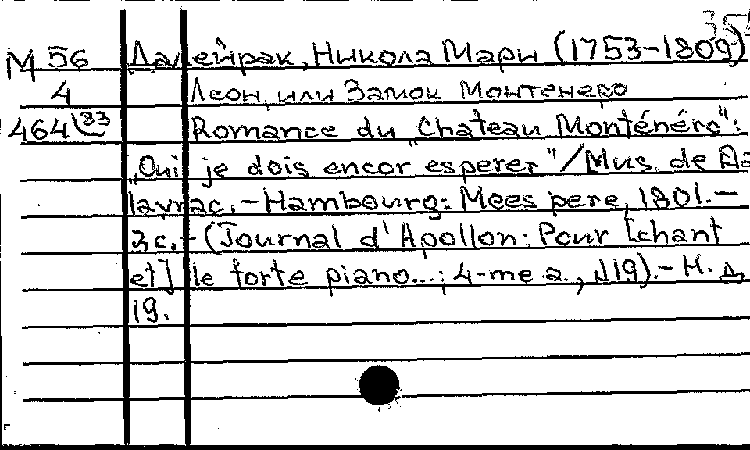 35
М 56 Далейрак, Никола Мари (1753-1809)
4 Леон, или Замок Монтенеро
464\83 Romance du „Chateau Monténéro":
„Oui je dois encor esperer"/Mus. de Da
layrac.-Hambourg: Mees pere, 1801.-
2с.-(Journal d'Apollon: Pour [chant
et] le forte piano...; 4-me a., N19).- Н. Д.
19.